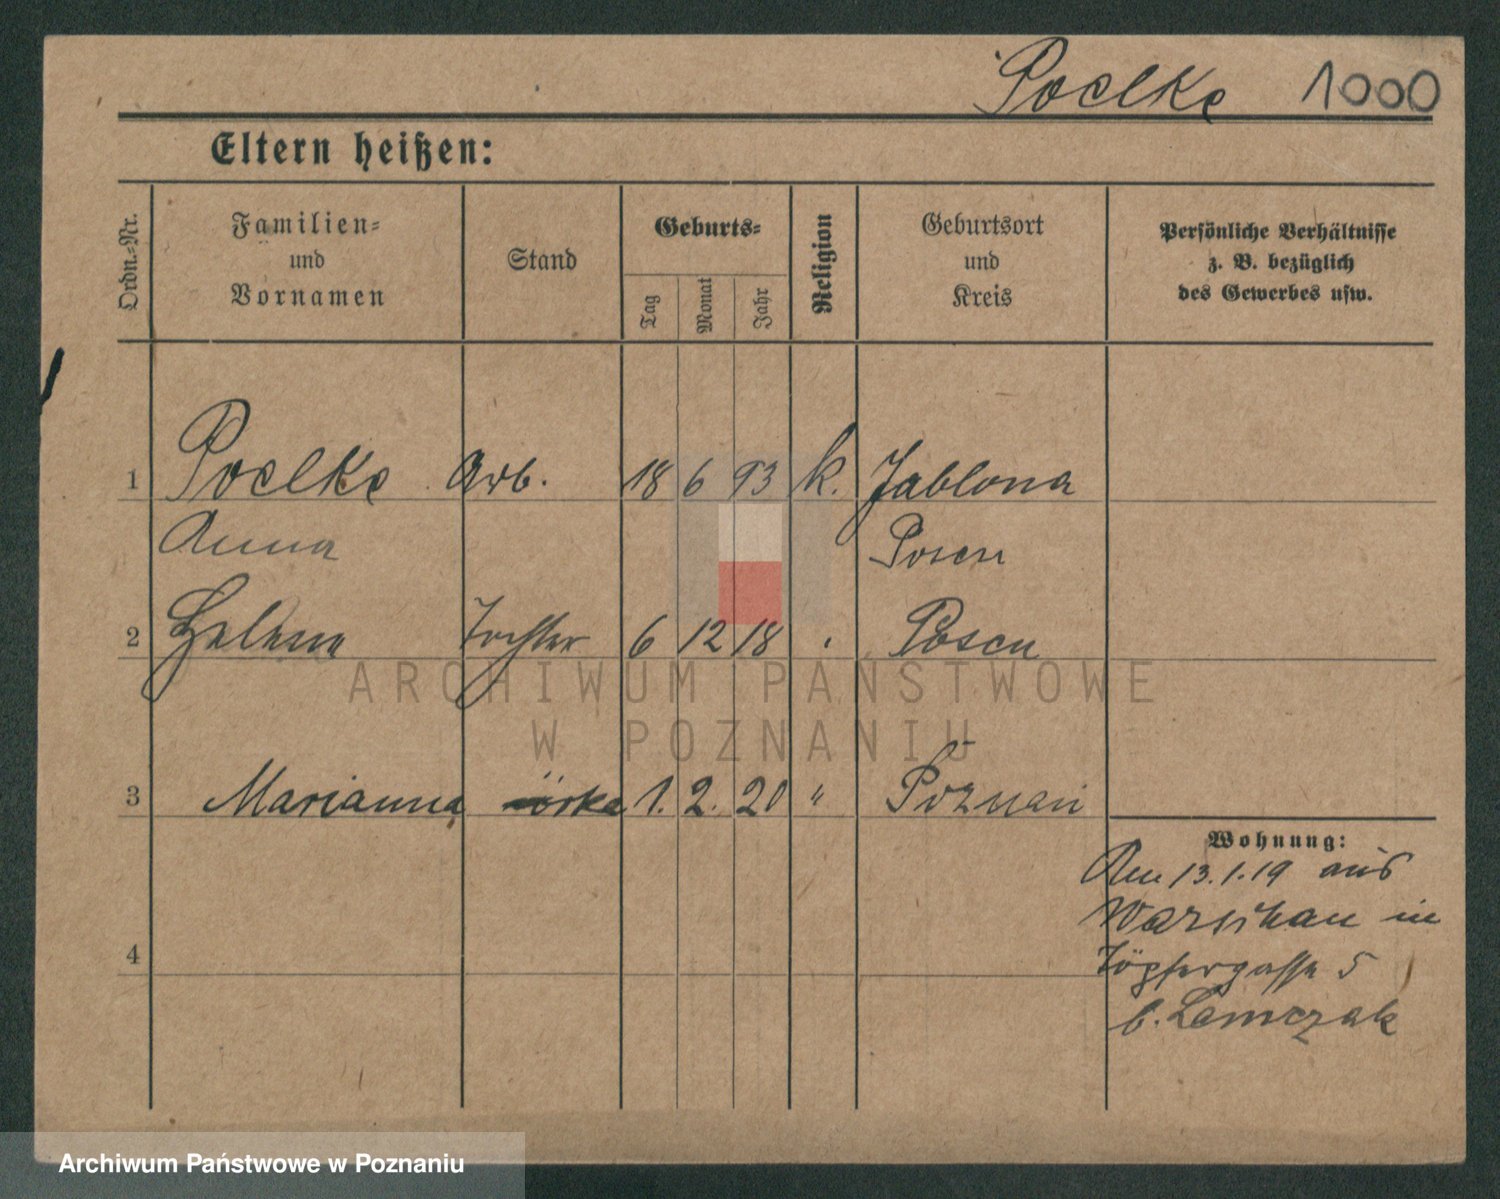 Poelke 1000
Eltern heißen:
Ordn.-Nr.
Familien-
und
Vornamen
Stand
Geburts-
Tag
Monat
Jahr
Religion
Geburtsort
und
Kreis
Persönliche Verhältnisse
z. B. bezüglich
des Gewerbes usw.
1 Poelke Arb. 18 6 93 k. Jablona
Anna Posen
2 Helene Tochter 6 12 18 " Posen
ARCHIWUM PAŃSTWOWE
W POZNANIU
3 Marianna córka 1. 2. 20 " Poznań
Wohnung:
Am 13.1.19 aus
Warschau in
Töpfergasse 5
b. Lemczak
4
Archiwum Państwowe w Poznaniu